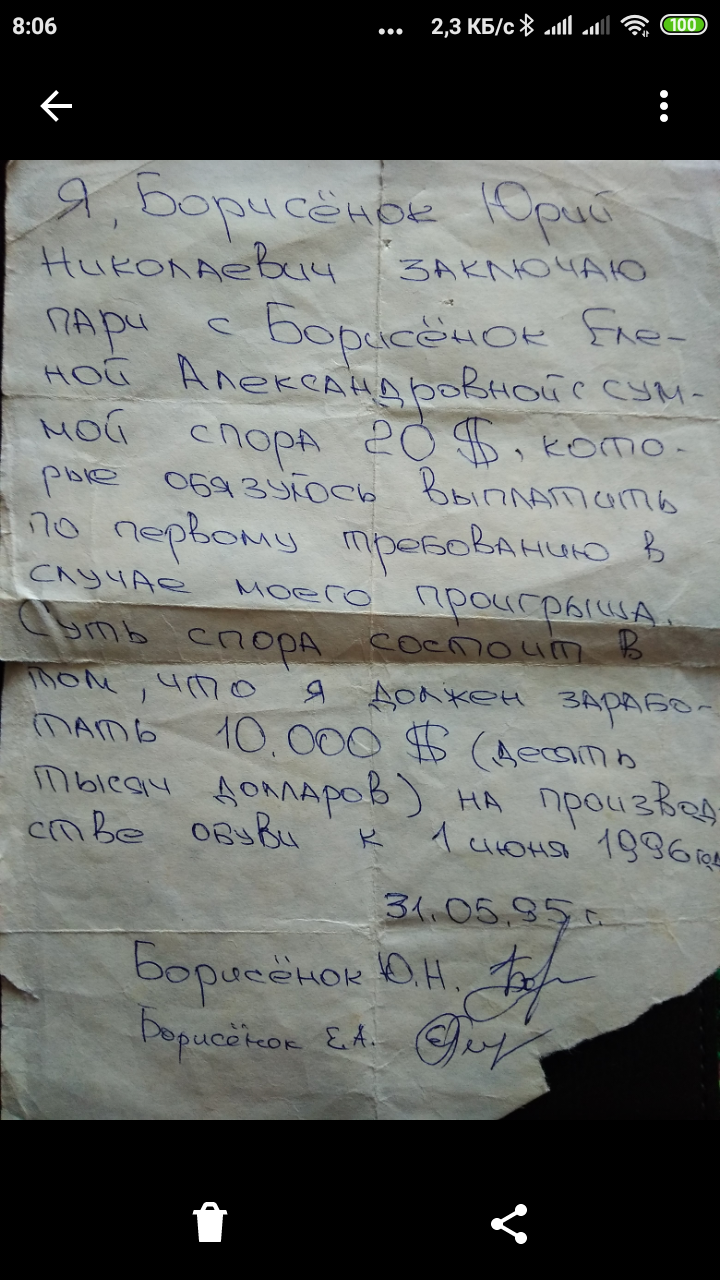 8:06
... 2,3 КБ/с 100
Я, Борисёнок Юрий
Николаевич заключаю
пари с Борисёнок Еле-
ной Александровной с сум-
мой спора 20 $, кото-
рые обязуюсь выплатить
по первому требованию в
случае моего проигрыша.
Суть спора состоит в
том, что я должен зарабо-
тать 10.000 $ (десять
тысяч долларов) на производ
стве обуви к 1 июня 1996 год
31.05.95 г.
Борисёнок Ю.Н.
Борисёнок Е.А.